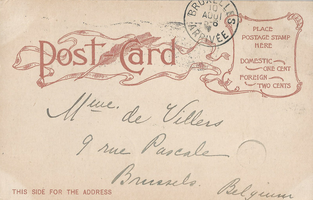 BRUXELLES
AOUT
ARRIVÉE
Post Card
PLACE
POSTAGE STAMP
HERE
DOMESTIC
ONE CENT
FOREIGN
TWO CENTS
Mme. de Villers
9 rue Pascale
Brussels.
Belgium
THIS SIDE FOR THE ADDRESS